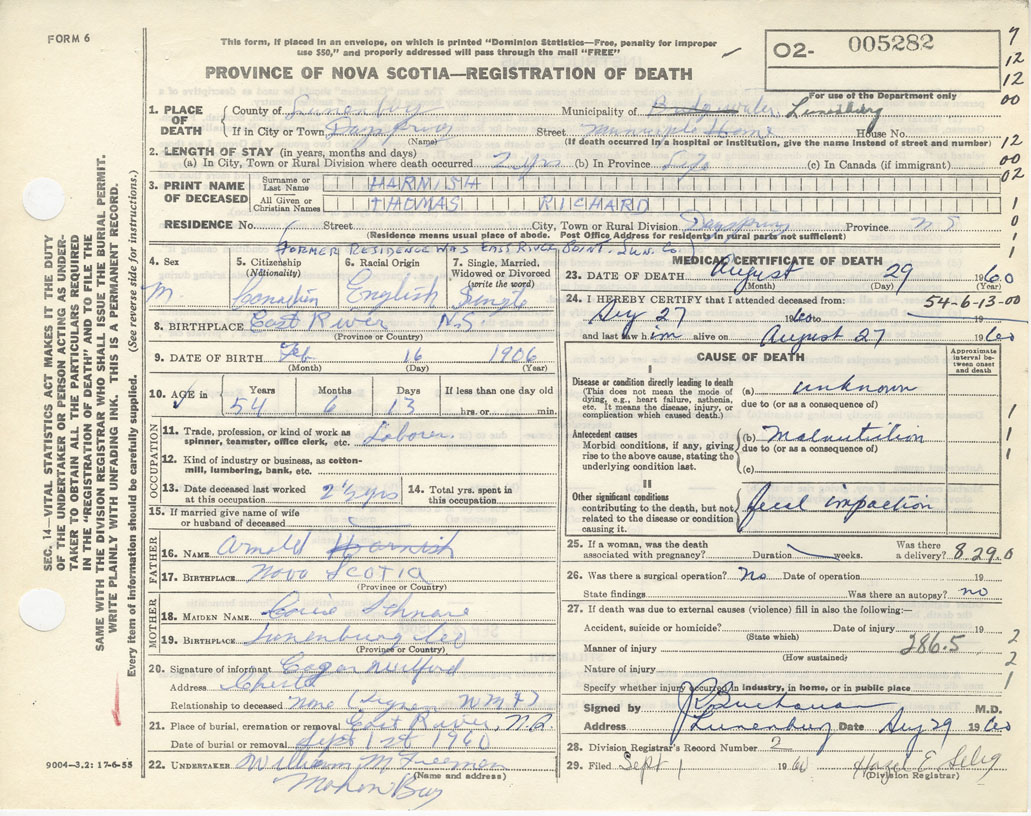 FORM 6
This form, if placed in an envelope, on which is printed "Dominion Statistics—Free, penalty for improper
use $50," and properly addressed will pass through the mail "FREE"
PROVINCE OF NOVA SCOTIA—REGISTRATION OF DEATH
02- 005282
For use of the Department only
7
12
12
00
12
00
02
1
0
1
1
SEC. 14—VITAL STATISTICS ACT MAKES IT THE DUTY
OF THE UNDERTAKER OR PERSON ACTING AS UNDER-
TAKER TO OBTAIN ALL THE PARTICULARS REQUIRED
IN THE "REGISTRATION OF DEATH" AND TO FILE THE
SAME WITH THE DIVISION REGISTRAR WHO SHALL ISSUE THE BURIAL PERMIT.
WRITE PLAINLY WITH UNFADING INK. THIS IS A PERMANENT RECORD.
Every item of information should be carefully supplied. (See reverse side for instructions.)
1. PLACE OF DEATH
County of Lunenburg Municipality of Bridgewater Lunenburg
If in City or Town Dayspring Street Municiple Home House No.
(Name) (If death occurred in a hospital or Institution, give the name instead of street and number)
2. LENGTH OF STAY (in years, months and days)
(a) In City, Town or Rural Division where death occurred 2 yrs (b) In Province Life (c) In Canada (if immigrant)
3. PRINT NAME OF DECEASED
Surname or Last Name HARNISH
All Given or Christian Names THOMAS RICHARD
RESIDENCE No. Street City, Town or Rural Division Dayspring Province N S
(Residence means usual place of abode. Post Office Address for residents in rural parts not sufficient)
FORMER RESIDENCE WAS EAST RIVER POINT. LUN. Co.
4. Sex M.
5. Citizenship (Nationality) Canadian
6. Racial Origin English
7. Single, Married, Widowed or Divorced (write the word) Single
8. BIRTHPLACE East River N.S.
(Province or Country)
9. DATE OF BIRTH Feb 16 1906
(Month) (Day) (Year)
10. AGE in Years 54 Months 6 Days 13 If less than one day old hrs. or min.
OCCUPATION
11. Trade, profession, or kind of work as
spinner, teamster, office clerk, etc. Laborer.
12. Kind of industry or business, as cotton-
mill, lumbering, bank, etc.
13. Date deceased last worked
at this occupation 2½ yrs
14. Total yrs. spent in
this occupation
15. If married give name of wife
or husband of deceased
FATHER
16. NAME Arnold Harnish
17. BIRTHPLACE Nova Scotia
(Province or Country)
MOTHER
18. MAIDEN NAME Schnare
19. BIRTHPLACE Lunenburg Co
(Province or Country)
20. Signature of informant
Address Chester
Relationship to deceased none
21. Place of burial, cremation or removal East River, N.S.
Date of burial or removal Sept 1st 1960
22. UNDERTAKER William M Freeman
(Name and address)
Mahon Bay
9004—3.2: 17-6-55
MEDICAL CERTIFICATE OF DEATH
23. DATE OF DEATH August 29 1960
(Month) (Day) (Year)
24. I HEREBY CERTIFY that I attended deceased from: 54-6-13-00
Aug 27 1960 to 19
and last saw him alive on August 27 1960
CAUSE OF DEATH
Approximate interval between onset and death
I
Disease or condition directly leading to death
(This does not mean the mode of
dying, e.g., heart failure, asthenia,
etc. It means the disease, injury, or
complication which caused death.)
(a) unknown
due to (or as a consequence of)
Antecedent causes
Morbid conditions, if any, giving
rise to the above cause, stating the
underlying condition last.
(b) Malnutition
due to (or as a consequence of)
(c)
1
1
1
II
Other significant conditions
contributing to the death, but not
related to the disease or condition
causing it.
fecal impaction
25. If a woman, was the death
associated with pregnancy? Duration weeks. Was there
a delivery? 829.0
26. Was there a surgical operation? No Date of operation 19
State findings Was there an autopsy? no
27. If death was due to external causes (violence) fill in also the following:—
Accident, suicide or homicide? Date of injury 19
(State which)
Manner of injury 286.5
(How sustained)
Nature of injury
2
2
1
Specify whether injury occurred in industry, in home, or in public place
Signed by J R Buchanan M.D.
Address Lunenburg Date Aug 29 1960
28. Division Registrar's Record Number 2
29. Filed Sept 1 1960 Hazel E. Selig
(Division Registrar)